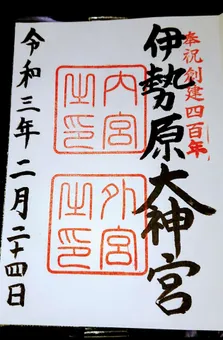 奉祝創建四百年
伊勢原大神宮
内宮之印
外宮之印
令和三年二月二十四日